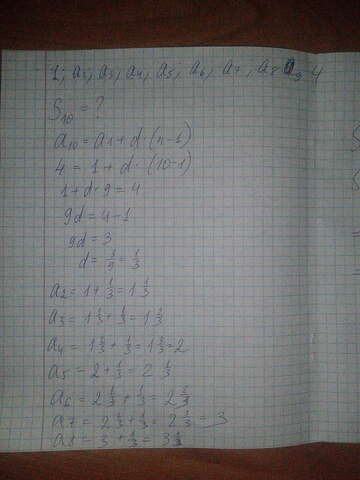 1; a2, a3, a4, a5; a6, a7, a8 a9 4
S10 = ?
a10 = a1 + d·(n-1)
4 = 1 + d·(10-1)
1 + d·9 = 4
9d = 4-1
9d = 3
d = 3/9 = 1/3
a2 = 1 + 1/3 = 1 1/3
a3 = 1 1/3 + 1/3 = 1 2/3
a4 = 1 2/3 + 1/3 = 1 3/3 = 2
a5 = 2 + 1/3 = 2 1/3
a6 = 2 1/3 + 1/3 = 2 2/3
a7 = 2 2/3 + 1/3 = 2 3/3 = 3
a8 = 3 + 1/3 = 3 1/3